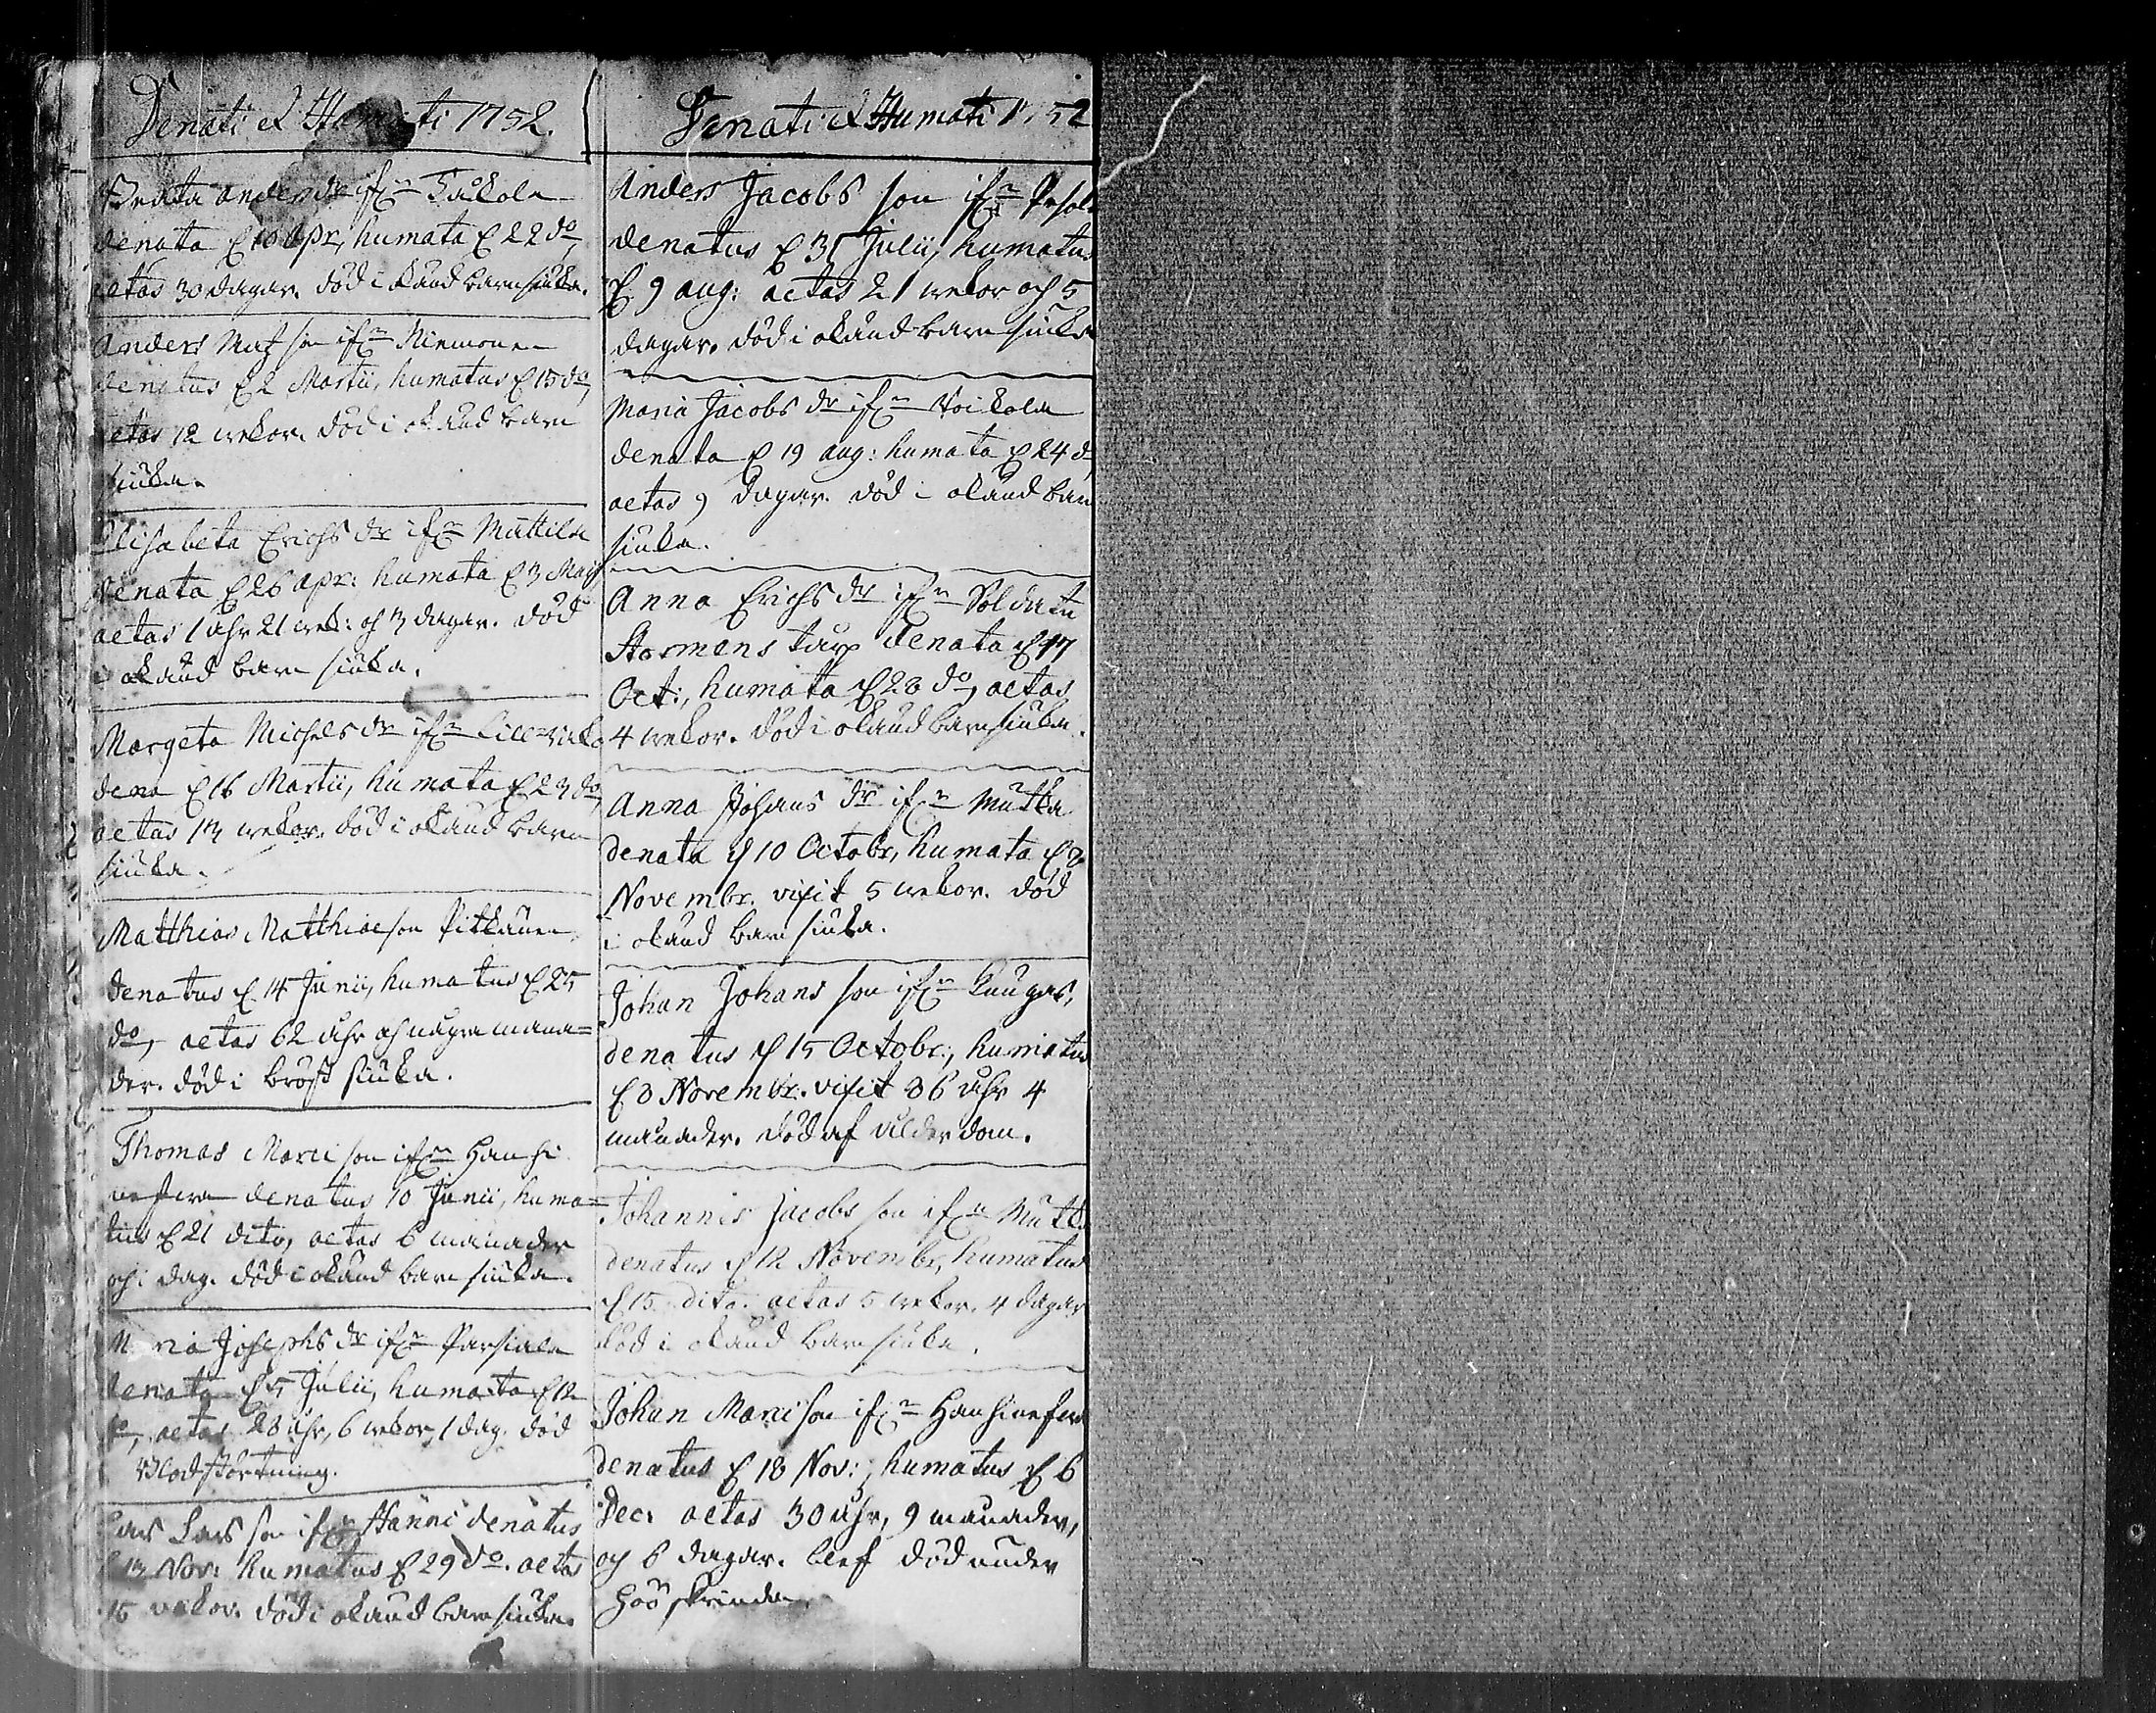 Denati et Humati 1752.
Beata anders dr ifrn
denata d 16 Apr, humata d 22 do,
aetas 30 dagar. död i okänd barnsiuka.
Anders Matz son ifrn Niemonen
denatus d 2 Martii, humatus d 15 do,
aetas 12 wekor. död i okänd barn
siuka.
Elisabeta Erichs dr ifrn Mattila
denata d 26 apr: humata d 3 Maij
aetas 1 ahr 21 wek: och 3 dagar. död
i okänd barn siuka.
Margeta Michels dr ifrn
dena d 16 Martii, humata d 23 do,
aetas 13 wekor. död i okänd barn
siuka.
Matthias Matthiae son Pitkänen
denatus d 14 Junii, humatus d 25
do, aetas 62 åhr och några måna=
der. död i bröst siuka.
Thomas Marci son ifrn Hanhi
nefwa denatus 10 Junii, huma=
tus d 21 dito, aetas 6 månader
och 1 dag. död i okänd barn siuka.
Maria Josephs dr ifrn Parsiala
denata d 5 Julii, humata d 12
do, aetas 28 åhr, 6 wekor, 1 dag. död
Blodstörtning.
Lars Lars son ifrn Hänni denatus
d 13 Nov: humatus d 29 do. aetas
15 wekor. död i okänd barn siuka.
Denati et Humati 1752
Anders Jacobs son ifrn
denatus d 31 Julii, humatus
d 9 aug: aetas 21 wekor och 5
dagar. död i okänd barn siuka
Maria Jacobs dr ifrn Voikala
denata d 19 aug: humata d 24 d
aetas 9 dagar. död i okänd barn
siuka.
Anna Erichs dr ifrn Soldaten
Stormens torp denata d 17
Oct:, humata d 23 do, aetas
4 wekor. död i okänd barn siuka.
Anna Johans dr ifrn Mutka
denata d 10 Octobr, humata d 2
Novembr. vixit 5 wekor. död
i okänd barn siuka.
Johan Johans son ifrn Kangas,
denatus d 15 Octobr:, humatus
d 3 Novembr. vixit 86 åhr 4
månader. död af ålderdom.
Johannis Jacobs son ifrn Mutka
denatus d 12 Novembr, humatus
d 15 dito. aetas 5 wekor. 4 dagar
död i okänd barn siuka.
Johan Marci son ifrn Hanhinefwa
denatus d 18 Nov:, humatus d 6
Dec: aetas 30 åhr, 9 månader,
och 6 dagar. blef död under
Höö skrinda.